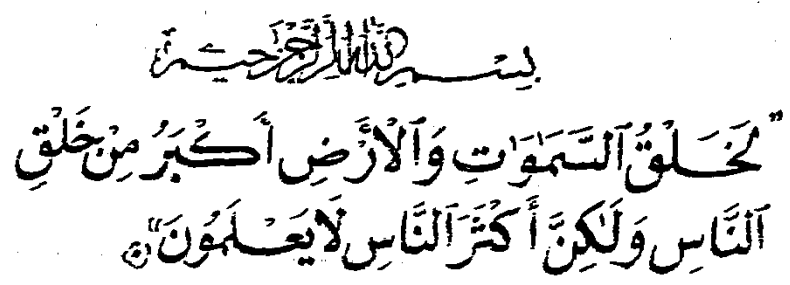 بِسْمِ اللهِ الرَّحْمٰنِ الرَّحِيمِ
"لَخَلْقُ ٱلسَّمَٰوَٰتِ وَٱلْأَرْضِ أَكْبَرُ مِنْ خَلْقِ
ٱلنَّاسِ وَلَٰكِنَّ أَكْثَرَ ٱلنَّاسِ لَا يَعْلَمُونَ"